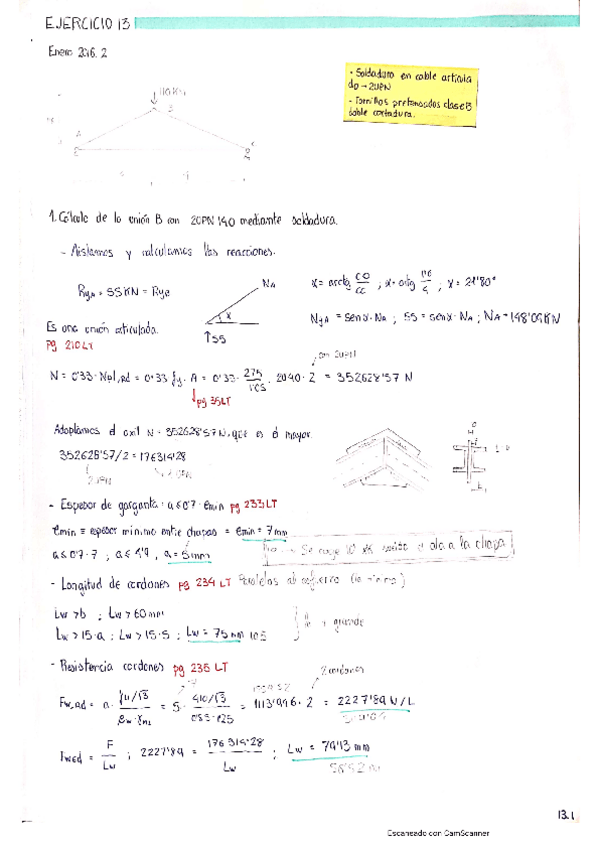 EJERCICIO 13
Enero 2016. 2
- Soldadura en doble articula
do → 2UPN
- Tornillos pretensados clase B
doble cortadura.
110 KN
B
A
C
1. Cálculo de la unión B con 2UPN 140 mediante soldadura.
- Aislamos y calculamos las reacciones.
RyA = 55KN = Ryc
NA
α
↑55
α = arctg CO/CC ; α = arctg / 4 ; γ = 21'80°
NyA = senα · NA ; 55 = senα · NA ; NA = 148'09KN
Es una unión articulada.
pg 210LT
con 2UPN
N = 0'33 · Npl,Rd = 0'33 · fy · A = 0'33 · 275/1'05 · 2040 · 2 = 352628'57 N
↓pg 35LT
Adoptamos el axil N = 352628'57N, que es el mayor.
352628'57/2 = 176314'28
2UPN
- Espesor de garganta: a ≤ 0'7 · emin pg 233LT
emin = espesor mínimo entre chapas = emin = 7mm
a ≤ 0'7 · 7 ; a ≤ 4'9 , a = 5mm
Se coge 10 el ala a la chapa
- Longitud de cordones pg 234 LT Paralelos al esfuerzo
Lw > b ; Lw > 60mm
Lw > 15 · a ; Lw > 15 · 5 ; Lw = 75mm 105
grande
- Resistencia cordones pg 235 LT
2 cordones
Fw,Rd = a · fu/√3 / βw · γM2 = 5 · 410/√3 / 0'85 · 1'25 = 1113'946 · 2 = 2227'89 N/L
Fw,Ed = F/Lw ; 2227'89 = 176314'28/Lw ; Lw = 79'13 mm
13.1
Escaneado con CamScanner